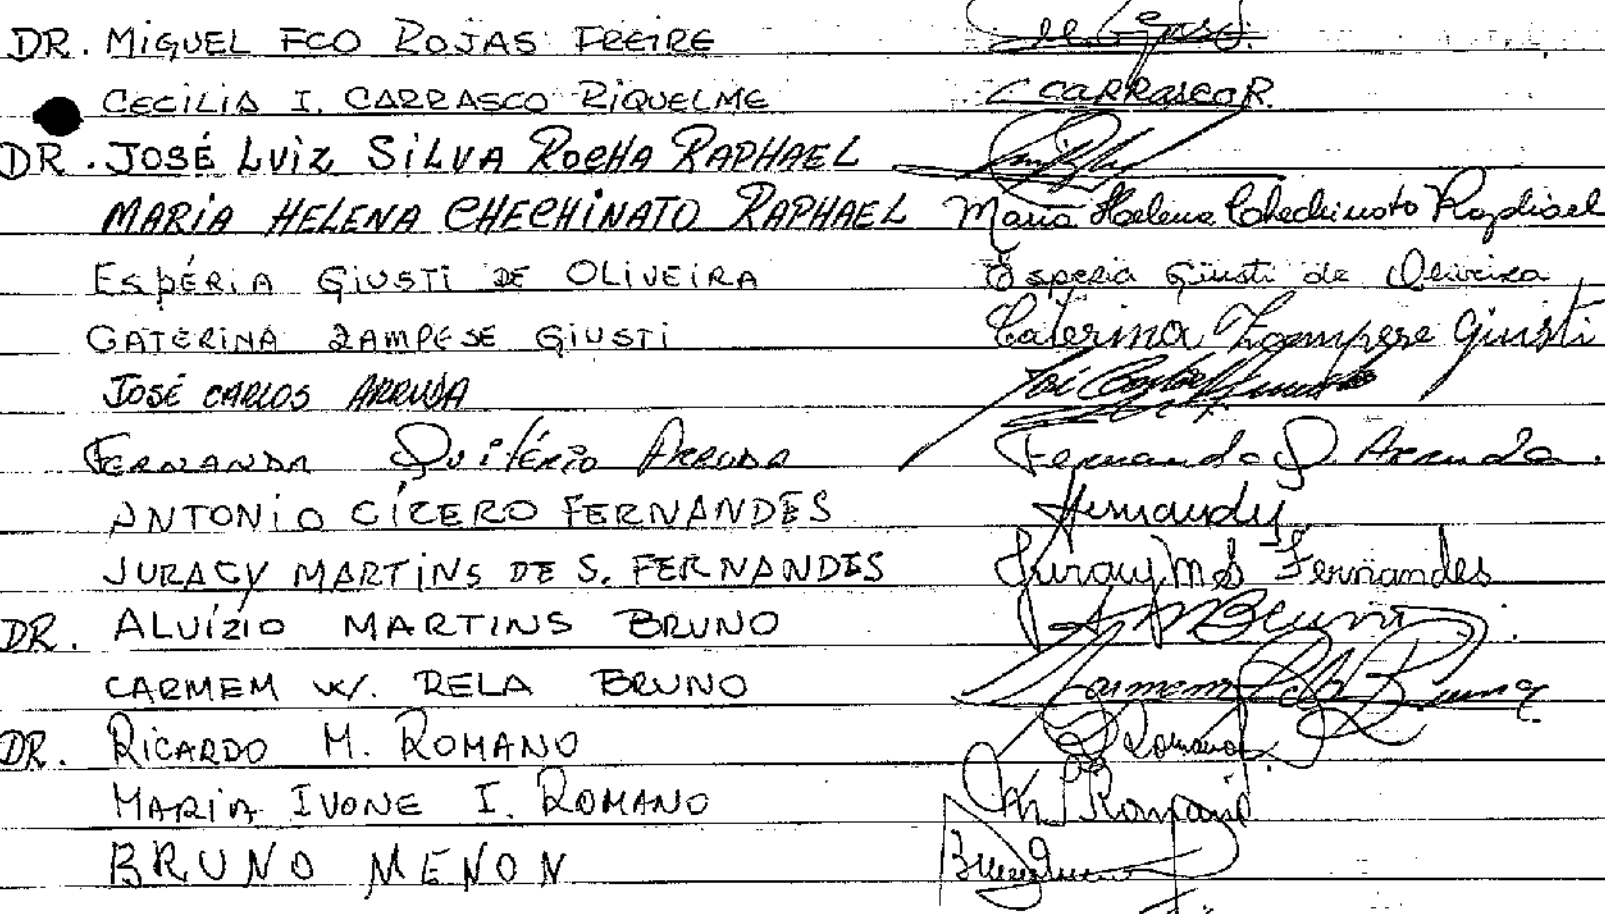 DR. MIGUEL FCO ROJAS FREIRE
CECILIA I. CARRASCO RIQUELME C CARRASCO R.
DR. JOSÉ LUIZ SILVA ROCHA RAPHAEL
MARIA HELENA CHECHINATO RAPHAEL Maria Helena Chechinato Raphael
ESPÉRIA GIUSTI DE OLIVEIRA Esperia Giusti de Oliveira
CATERINA ZAMPESE GIUSTI Caterina Zampese Giusti
JOSÉ CARLOS ARRUDA José Carlos Arruda
FERNANDA Quitério ARRUDA Fernanda Q. Arruda.
ANTONIO CÍCERO FERNANDES Fernandes
JURACY MARTINS DE S. FERNANDES Juracy M S Fernandes
DR. ALUÍZIO MARTINS BRUNO AMBruno
CARMEM W. RELA BRUNO Carmem Rela Bruno
DR. RICARDO M. ROMANO Romano
MARIA IVONE I. ROMANO M I Romano
BRUNO MENON